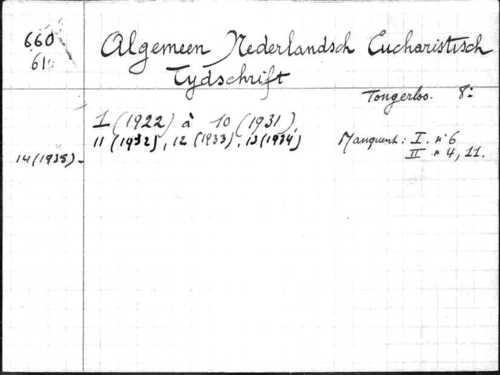 660
61
Algemeen Nederlandsch Eucharistisch
Tydschrift
Tongerloo. 8:
I (1922) à 10 (1931)
11 (1932), 12 (1933), 13 (1934)
Manquent: I. n° 6
II n 4, 11.
14 (1935) -